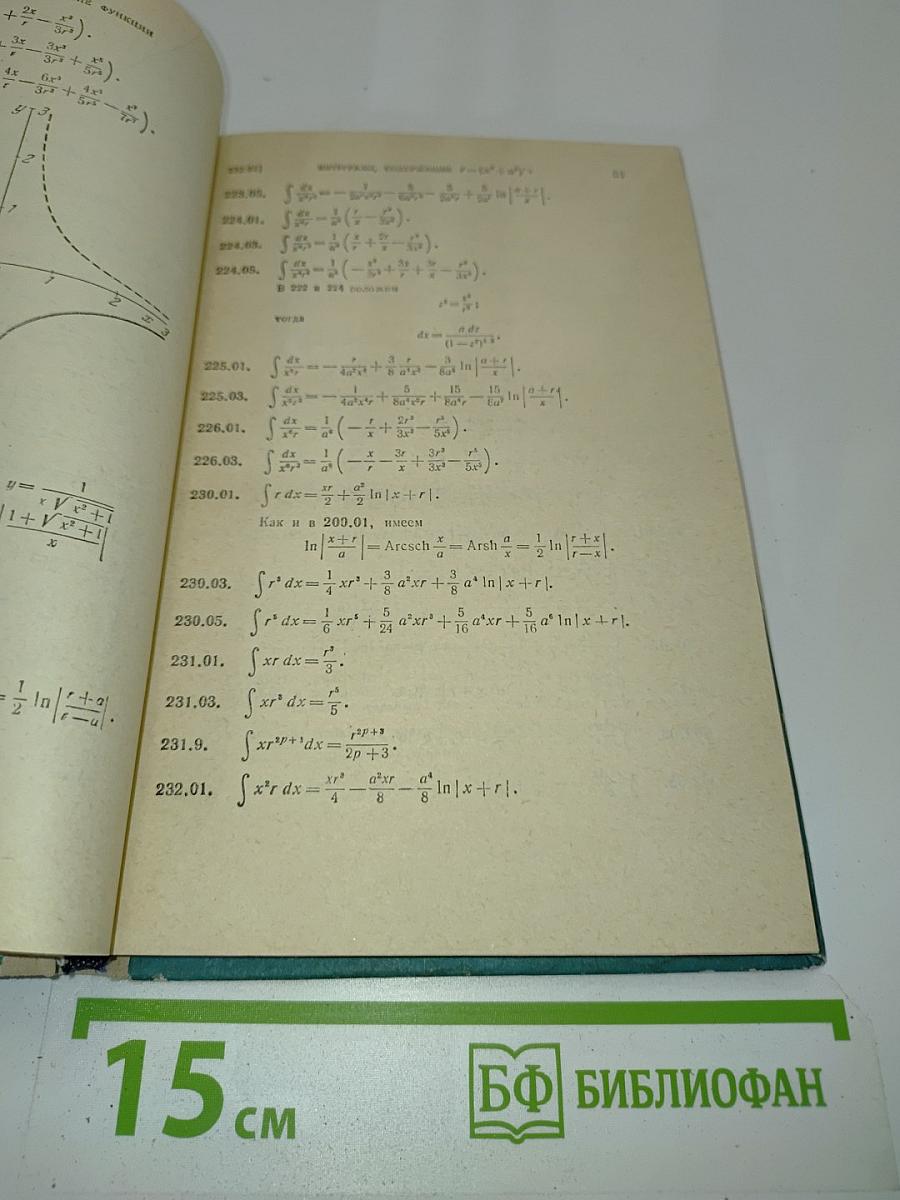 + 2x/r − x³/3r³).
+ 3x/r − 3x³/3r³ + x⁵/5r⁵).
4x/r − 6x³/3r³ + 4x⁵/5r⁵
y 3
2
1
1
2
x 3
y = 1/(x√(x²+1))
|(1+√(x²+1))/x|
= 1/2 ln |(r+a)/(r−a)|.
ИНТЕГРАЛЫ, СОДЕРЖАЩИЕ
223.05.
224.01. ∫ dx/x⁴r = 1/a⁴ (r/x − r³/3x³).
224.03.
224.05.
В 222 и 224 положим
z² = x²/r²;
тогда
dx = a dz/(1−z²)^3/2.
225.01. ∫ dx/x⁵r = − r/4a²x⁴ + 3/8 r/a⁴x² − 3/8a⁵ ln |(a+r)/x|.
225.03. ∫ dx/x⁵r³ = − 1/4a²x⁴r + 5/8a⁴x²r + 15/8a⁶r − 15/8a⁷ ln |(a+r)/x|.
226.01. ∫ dx/x⁶r = 1/a⁶ (− r/x + 2r³/3x³ − r⁵/5x⁵).
226.03. ∫ dx/x⁶r³ = 1/a⁸ (− x/r − 3r/x + 3r³/3x³ − r⁵/5x⁵).
230.01. ∫ r dx = xr/2 + a²/2 ln | x + r |.
Как и в 200.01, имеем
ln |(x+r)/a| = Arcsch x/a = Arsh a/x = 1/2 ln |(r+x)/(r−x)|.
230.03. ∫ r³ dx = 1/4 xr³ + 3/8 a²xr + 3/8 a⁴ ln | x + r |.
230.05. ∫ r⁵ dx = 1/6 xr⁵ + 5/24 a²xr³ + 5/16 a⁴xr + 5/16 a⁶ ln | x + r |.
231.01. ∫ xr dx = r³/3.
231.03. ∫ xr³ dx = r⁵/5.
231.9. ∫ xr²ᵖ⁺¹ dx = r²ᵖ⁺³/(2p+3).
232.01. ∫ x²r dx = xr³/4 − a²xr/8 − a⁴/8 ln | x + r |.
15 см
БФ БИБЛИОФАН